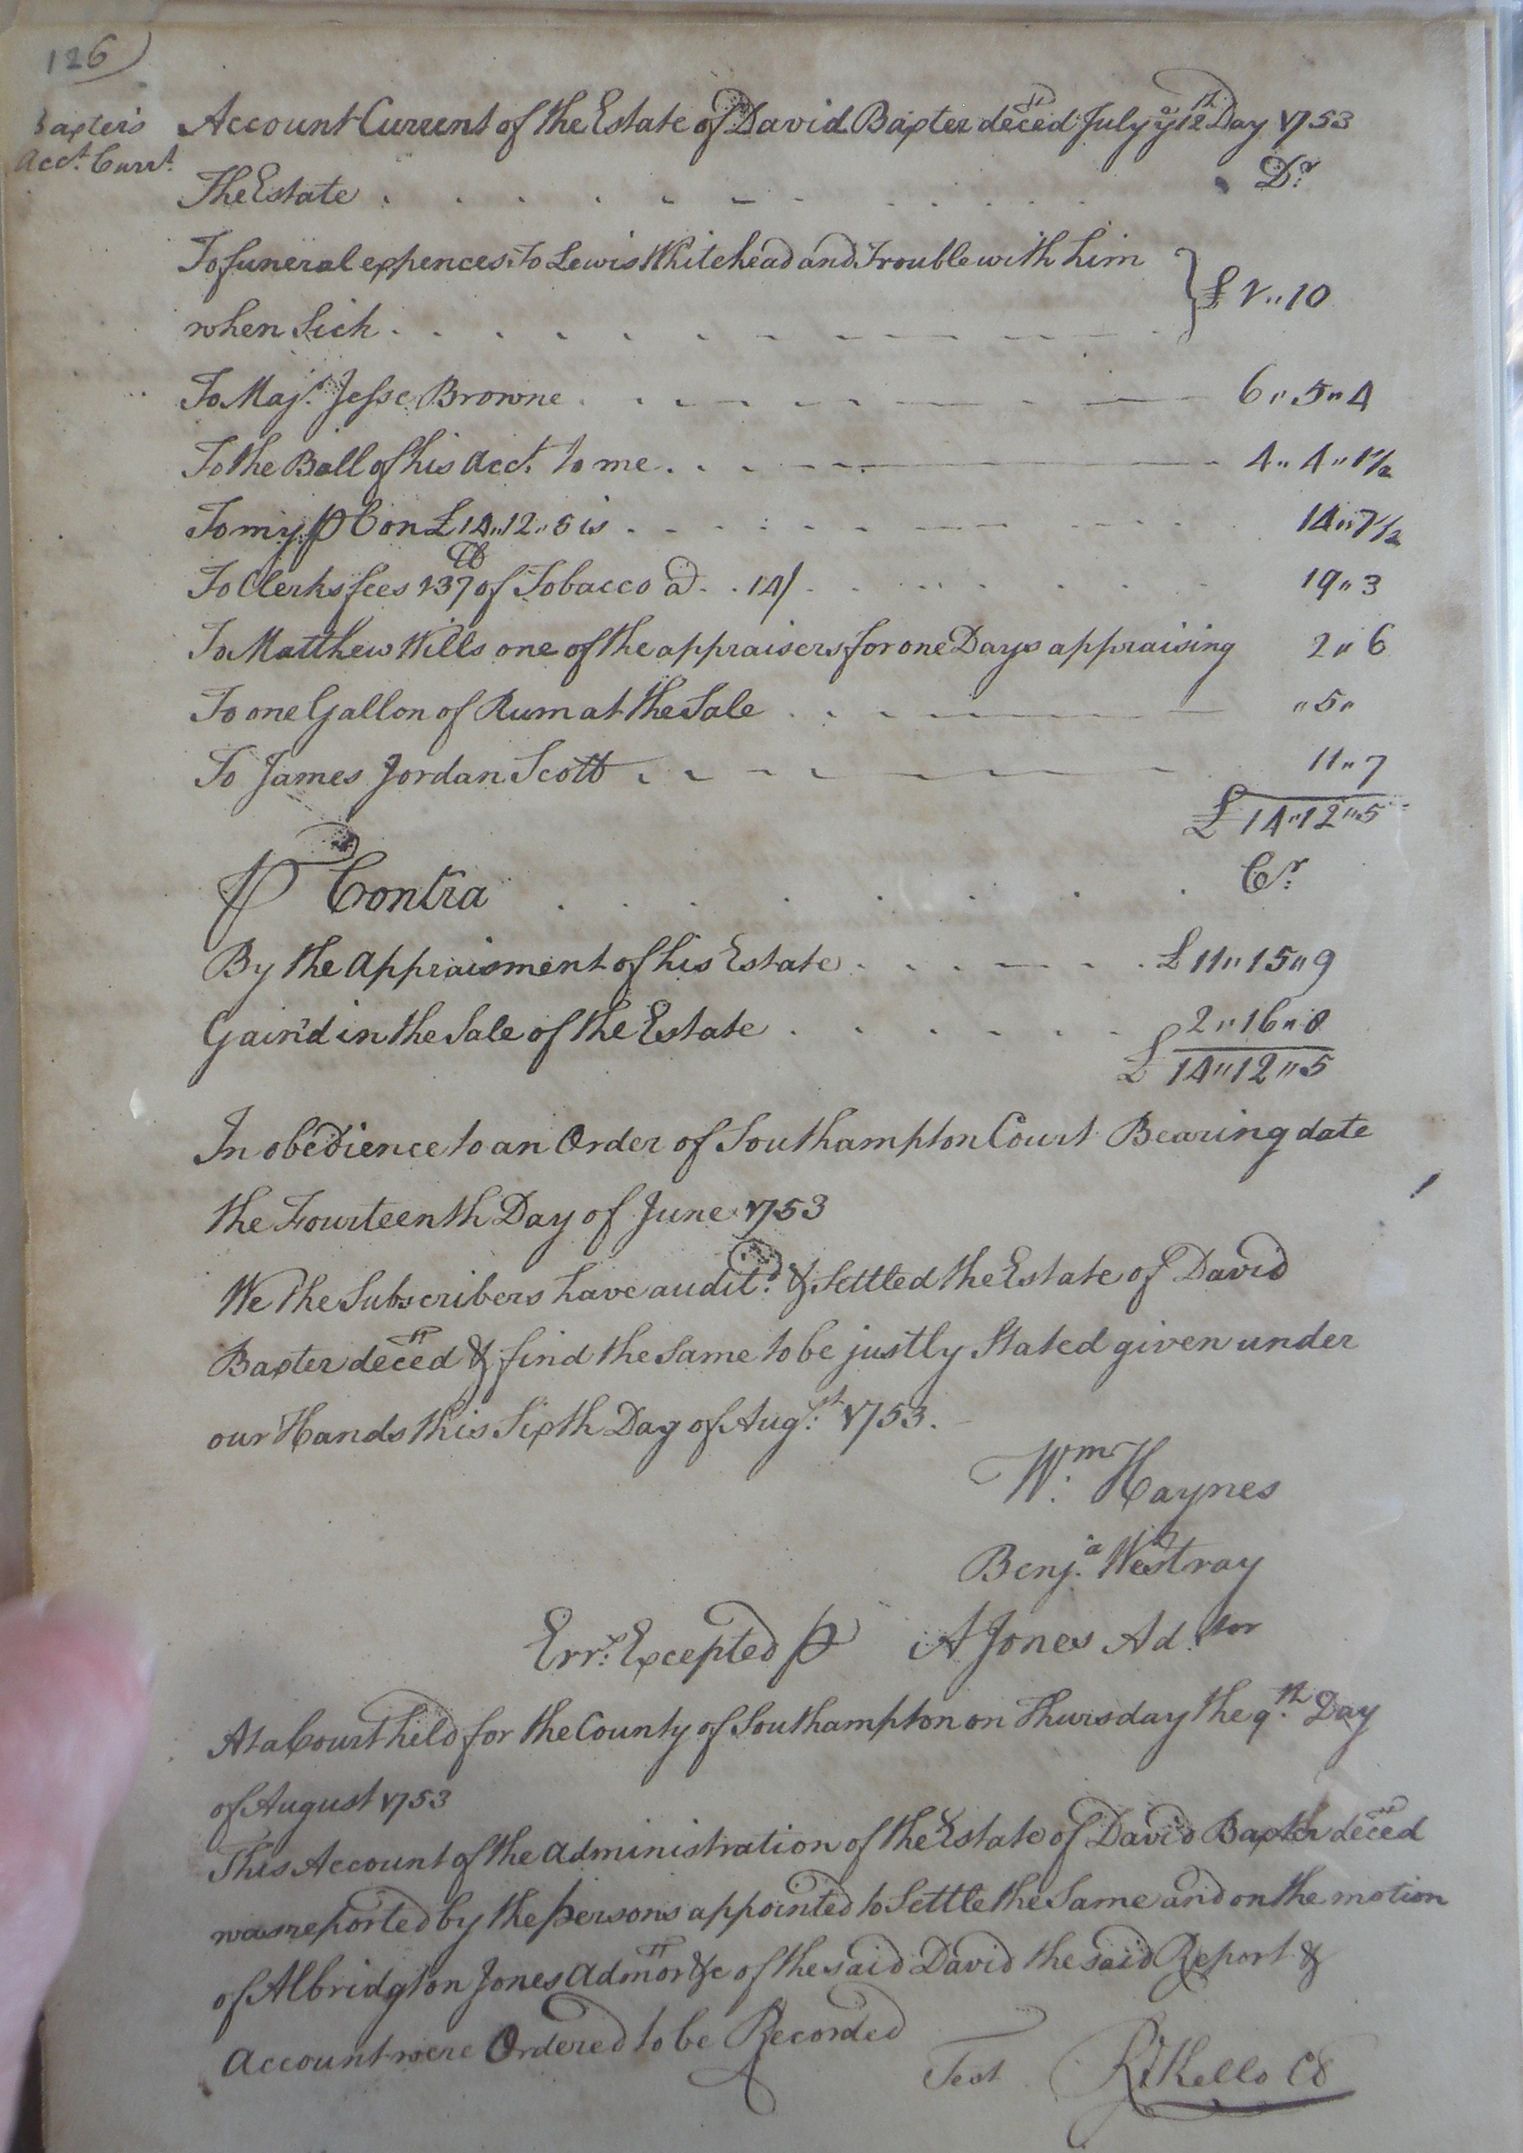 126
Baxter's
Acct. Currt.
Account Current of the Estate of David Baxter deced July ye 12th Day 1753
The Estate Dr.
To funeral expences To Lewis Whitehead and Trouble with him
when Sick £ 1 " 10
To Majr. Jesse Browne 6 " 5 " 4
To the Ball of his Acct. to me 4 " 4 " 1 1/2
To my p C on £ 14 " 12 " 5 is 14 " 7 1/2
To Clerks fees 137 lb of Tobacco a 14/ 19 " 3
To Matthew Wills one of the appraisers for one Days appraising 2 " 6
To one Gallon of Rum at the Sale " 5 "
To James Jordan Scott 11 " 7
£ 14 " 12 " 5
P Contra Cr.
By the Appraisment of his Estate £ 11 " 15 " 9
Gain'd in the Sale of the Estate 2 " 16 " 8
£ 14 " 12 " 5
In obedience to an Order of Southampton Court Bearing date
the Fourteenth Day of June 1753
We the Subscribers have audit.d & Settled the Estate of David
Baxter deced & find the Same to be justly Stated given under
our Hands this Sixth Day of Augst. 1753.
Wm. Haynes
Benja. Westray
Errs. Excepted P A Jones Ad.tor
At a Court held for the County of Southampton on Thursday the 9th. Day
of August 1753
This Account of the Administration of the Estate of David Baxter deced
was reported by the persons appointed to Settle the Same and on the motion
of Albridgton Jones Admor &c of the said David the said Report &
Account were Ordered to be Recorded
Test Rd Kello Cl